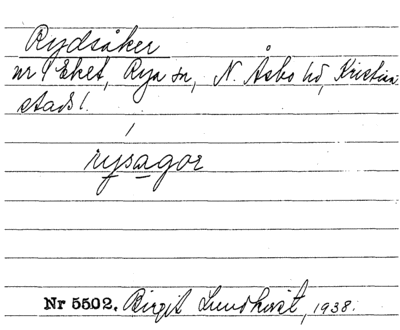 Rydsåker
nr 1 Eket, Rya sn, N. Åsbo hd, Kristian-
stads l.
rysagor
Nr 5502. Birgit Lundkvist, 1938.